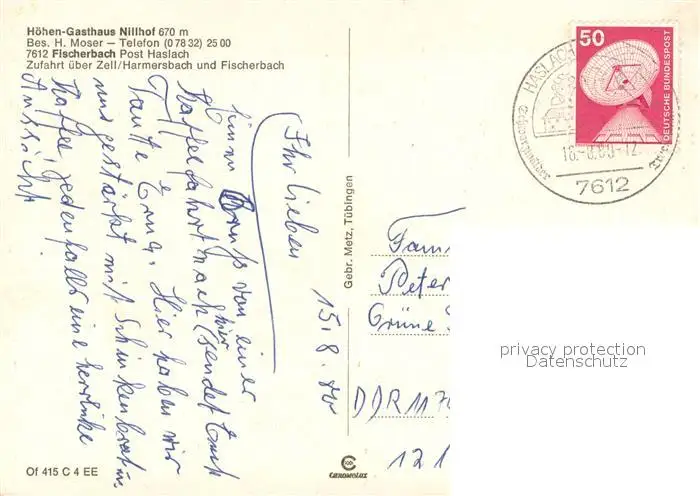 Höhen-Gasthaus Nillhof 670 m
Bes. H. Moser – Telefon (0 78 32) 25 00
7612 Fischerbach Post Haslach
Zufahrt über Zell/Harmersbach und Fischerbach
50
DEUTSCHE BUNDESPOST
HASLACH
7612
15.8.80
Ihr Lieben
einen Gruß von einer
Kaffeefahrt nach hier sendet Euch
Tante Erna. Hier haben wir
uns gestärkt mit Schinkenbrot u.
Kaffee jedenfalls eine herrliche
Aussicht
Gebr. Metz, Tübingen
Fam
Peter
Grüne
DDR 117
121
privacy protection
Datenschutz
Of 415 C 4 EE
CHROMOLUX